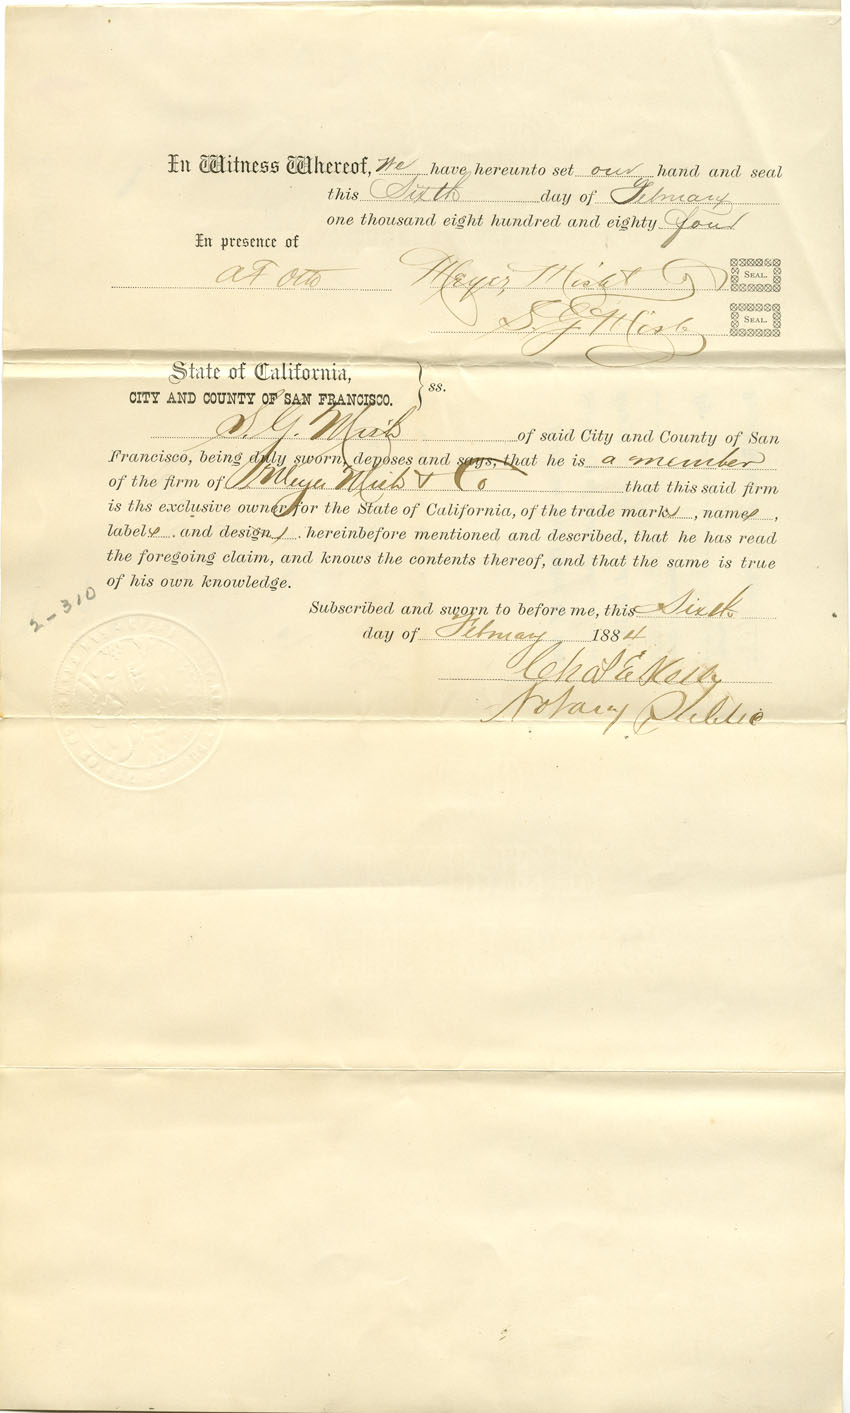 In Witness Whereof, We have hereunto set our hand and seal
this Sixth day of February
one thousand eight hundred and eighty four
In presence of
A F Otto Meyer, Mish & Co SEAL.
S. G. Mish SEAL.
State of California,
CITY AND COUNTY OF SAN FRANCISCO. } ss.
S. G. Mish of said City and County of San
Francisco, being duly sworn, deposes and says, that he is a member
of the firm of Meyer Mish & Co that this said firm
is ths exclusive owner for the State of California, of the trade marks, names,
labels. and designs. hereinbefore mentioned and described, that he has read
the foregoing claim, and knows the contents thereof, and that the same is true
of his own knowledge.
2-310
Subscribed and sworn to before me, this Sixth
day of February 1884
Chas E Kelly
Notary Public